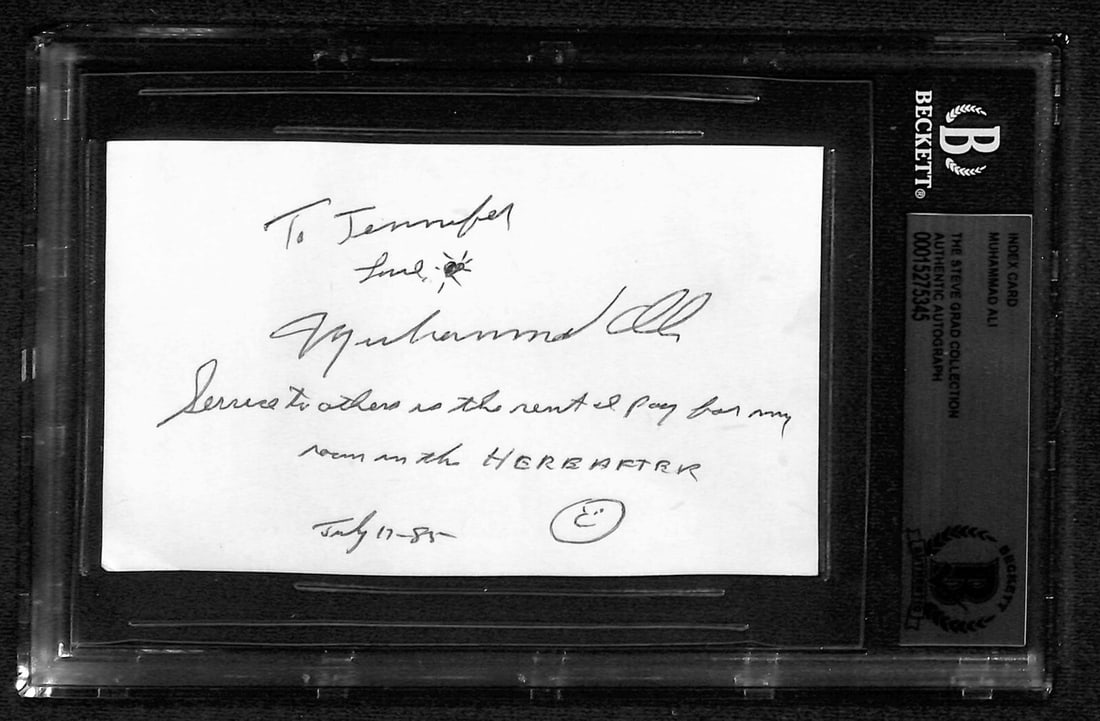 To Jennifer
Love,
Muhammad Ali
Service to others is the rent I pay for my
room in the HEREAFTER
July 17-85
BECKETT®
B
INDEX CARD
MUHAMMAD ALI
THE STEVE GRAD COLLECTION
AUTHENTIC AUTOGRAPH
00015275345
BECKETT
B
AUTHENTIC